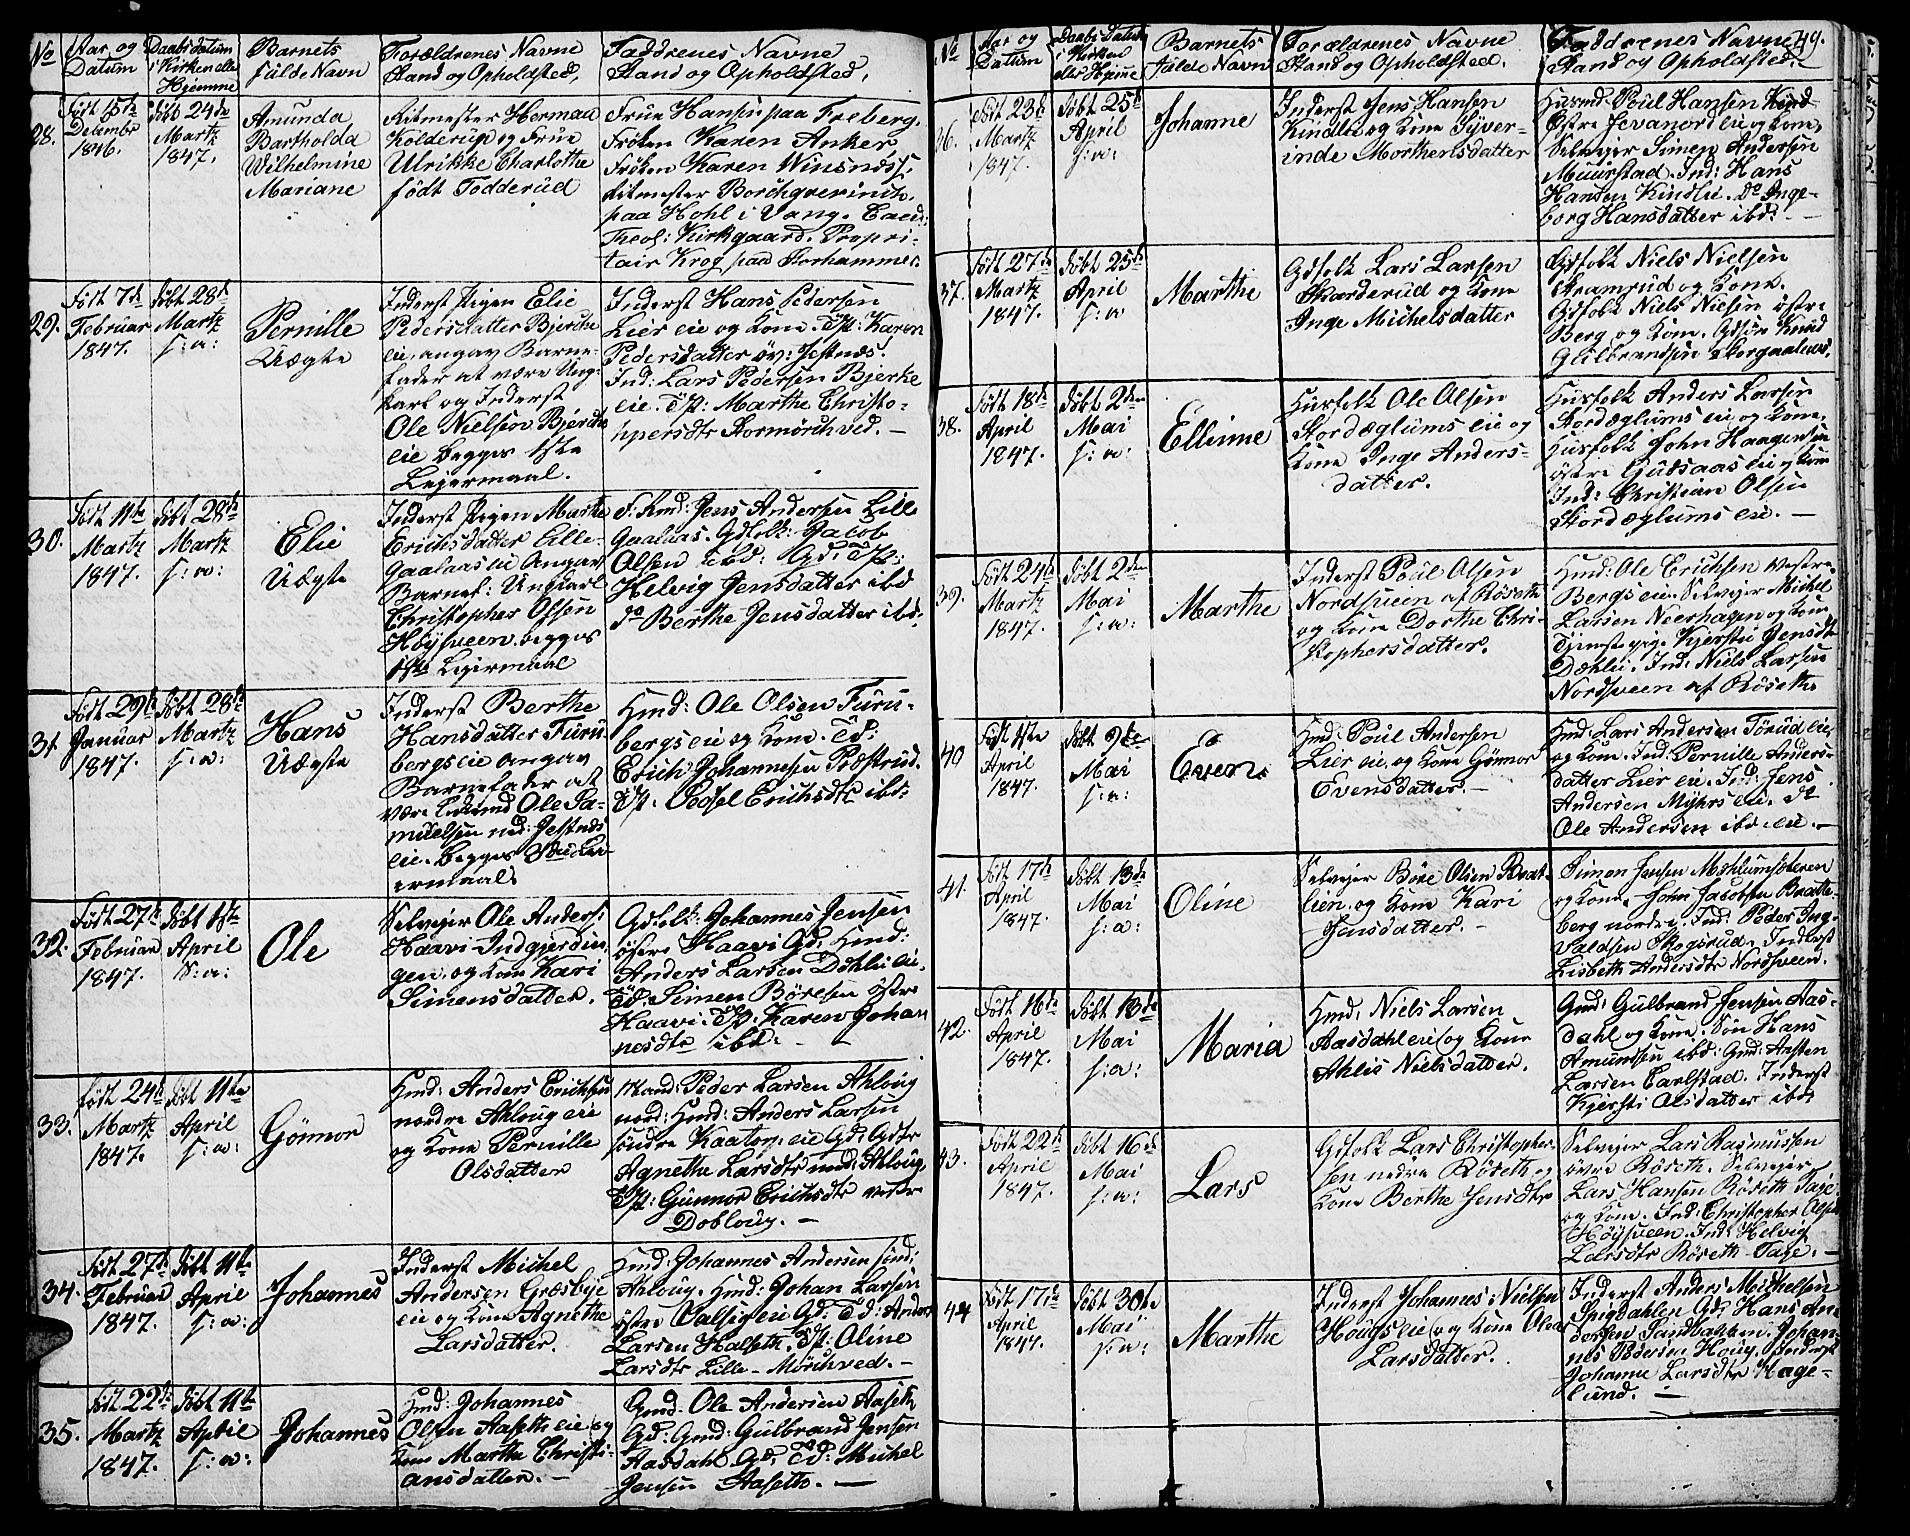 No
Aar og
Datum
Daabsdatum
i Kirken elle
Hjemme
Barnets
fulde Navn
Forældrenes Navne
Stand og Opholdsted,
Faddrenes Navne
Stand og Opholdsted,
28.
Født 15de
Decembr
1846.
døbt 24de
Martz
1847.
Amunda
Bartholda
Wilhelmine
Mariane
Ritmester Herman
Kolderup og Frue
Ulrikke Charlotthe
født Todderud
Frue Hansi paa Freberg.
Frøken Karen Anker
Frøken Karen Winsnes.
Ritmester Borchgrevinch
paa Hohl i Vang. Cand:
Theol: Kirkgaard. Propri-
tair Krog paa Storhammer.
29.
Født 7de
Februar
1847.
døbt 28de
Martz
s: a:
Pernille
Uægte
Inderst Pigen Elie
Pedersdatter Bjercke
eie, angav Barne-
fader at være Ung-
karl og Inderst
Ole Nielsen Bjercke
eie begges 1ste
Leiermaal.
Inderst Hans Pedersen
Lier eie og Kone. Tp: Karen
Pedersdatter øv: Jestnes.
Ind: Lars Pedersen Bjerke
eie. Tp: Marthe Christo-
phersdtr Stormørchved. —
30.
Født 11te
Martz
1847.
døbt 28de
Martz
s: a:
Elie
Uægte
Inderst Pigen Marthe
Erichsdatter Lille-
Gaalaas eie Angav
Barnef: Ungkarl
Christopher Olsen
Høysveen. begges
1ste Leiermaal
Jens Andersen Lille
Gaalaas. Gdfolk: Jacob
Olsen ibd: Gd: Tp:
Helvig Jensdatter ibd
do Berthe Jensdatter ibd.
31.
Født 29de
Januar
1847.
døbt 28de
Martz
s: a:
Hans
Uægte
Inderst Berthe
Hansdatter Furu-
bergs eie angav
Barnefader at
være Ole Sa-
muelsen ned: Jestnes
eie. begges
ermaal.
Hmd: Ole Olsen Furu-
bergs eie og Kone. Td:
Erich Johannesen Præstrud.
Tp. Sedsel Erichsdtr ibd:
32.
Født 27de
Februar
1847.
døbt
April
s: a:
Ole
Selveier Ole Anders:
Haavi Indgjerdin
gen, og Kone Kari
Simensdatter.
Gdfolk: Johannes Jensen
østre Haavi Gd: Hmd:
Anders Larsen Døhli eie.
Td: Simen Børesen østre
Haavi. Tp: Karen Johan
nesdtr ibd: —
33.
født 24de
Martz
1847.
døbt 11te
April
s: a:
Gønnor
Hmd: Anders Erichsen
nordre Ahloug eie
og Kone Pernille
Olsdatter
Mand: Peder Larsen Ahloug
nord: Hmd: Anders Larsen
søndre Kaatorp eie Gd: Gdtr
Agnethe Larsdtr nord: Ahloug
Tp: Gunnor Erichsdtr vestre
Dobloug. —
34.
født 27de
Februar
1847.
døbt 11te
April
s: a:
Johannes
Inderst Michel
Andersen Græsbye
eie og Kone Agnethe
Larsdatter.
Hmd: Johannes Andersen sønd:
Ahloug. Hmd: Johan Larsen
østre Valsig eie Gd: Td: Anders
Larsen Halseth. Tp: Oline
Larsdtr Lille-Mørchved. —
35.
født 22de
Martz
1847.
døbt 11te
April
s: a:
Johannes
Hmd: Johannes
Olsen Aaseth eie og
Kone Marthe Christi-
ansdatter. —
Gmd: Ole Andersen Aaseth
Gd: Gmd: Gulbrand Jensen
Aasdahl Gd: Td: Michel
Jensen Aaseth. —
No
Aar og
Datum
Daabs Datum
i Kirken
eller Hjemme
Barnets
fulde Navn
Forældrenes Navne
Stand og Opholdsted.
Faddrenes Navne
Stand og Opholdsted.
49.
36.
Født 23de
Martz
1847.
døbt 25de
April
s: a:
Johanne
Inderst Jens Hansen
Kindlie og Kone Syver-
inde Morthensdatter
Husmd. Poul Hansen
Østre Jevanord eie og Kone.
Selveier Simen Andersen
Muurstad. Ind: Hans
Hansen Kindlie. do Inge-
borg Hansdatter ibd: —
37.
Født 27de
Martz
1847.
døbt 25de
April
s: a:
Marthe
Gdfolk Lars Larsen
Skarderud og Kone
Inge Michelsdatter
Gdfolk Niels Nielsen
Kramrud og Kone.
Gdfolk Niels Nielsen østre
Berg og Kone. Gdsøn Knud
Gulbrandsen Skorgaalaas.
38.
Født 18de
April
1847.
døbt 2den
Mai
s: a:
Ellinne
Husfolk Ole Olsen
Stordæglums eie og
Kone Inge Anders-
datter.
Husfolk Anders Larsen
Stordæglums eie og Kone.
Husfolk John Haagensen
østre Gudsaas eie og Kone
Ind: Christian Olsen
Stordæglums eie. —
39.
Født 24de
Martz
1847.
døbt 2den
Mai
s: a:
Marthe
Inderst Poul Olsen
Nordsveen af Røseth
og Kone Dorthe Chri-
stophersdatter.
Hmd: Ole Erichsen vestre
Bergs eie. Selveier Michel
Larsen Neerhagen og Kone
Tjenstepige Kjersti Jensdtr
Dæhli. Ind: Niels Larsen
Nordsveen af Røseth
40.
Født 4de
April
1847.
døbt 9de
Mai
s: a:
Even.
Hmd: Poul Andersen
Lier eie, og Kone Gønnor
Evensdatter. —
Hmd: Lars Andersen Torud eie
og Kone. Ind: Pernille Anders-
datter Lier eie. Ind: Jens
Andersen Myhrs eie. do
Ole Andersen ibd: eie. —
41.
Født 17de
April
1847.
døbt 13de
Mai
s: a:
Oline
Selveier Børe Olsen Braat-
lien, og Kone Kari
Jensdatter. —
Simon Jensen Mæhlumsæteren
og Kone. John Jacobsen
berg nordre. Ind: Peder Ing-
valdsen Skogsrud. Inderst
Lisbeth Andersdtr Nordsveen.
42.
Født 16de
April
1847.
døbt 13de
Mai
s: a:
Maria
Hmd: Niels Larsen
Aasdahl eie og Kone
Ahlis Nielsdatter.
Gmd: Gulbrand Jensen Aas-
dahl og Kone. Søn Hans
Amundsen ibd: Gmd: Aasten
Larsen Carlstad. Inderst
Kjersti Olsdatter ibd:
43.
Født 22de
April
1847.
døbt 16de
Mai
s: a:
Lars
Gdfolk Lars Christopher-
sen nedre Røseth og
Kone Berthe Jensdtr
Selveier Lars Rasmussen
øvre Røseth. Selveier
Lars Hansen Røseth Sage
og Kone. Ind: Christopher Olsen
Høysveen. Ind: Helvig
Larsdtr Røseth Sage. —
44
Født 17de
April
1847.
døbt 30te
Mai
s: a:
Marthe
Inderst Johannes Nielsen
Hougs eie og Kone Olea
Larsdatter.
Inderst Anders Michelsen
Spigdahlen Gd: Hans An-
dersen Sandbakken. Johan-
nes Pedersen Houg. Inderst
Johanne Larsdtr Hage-
lund. —